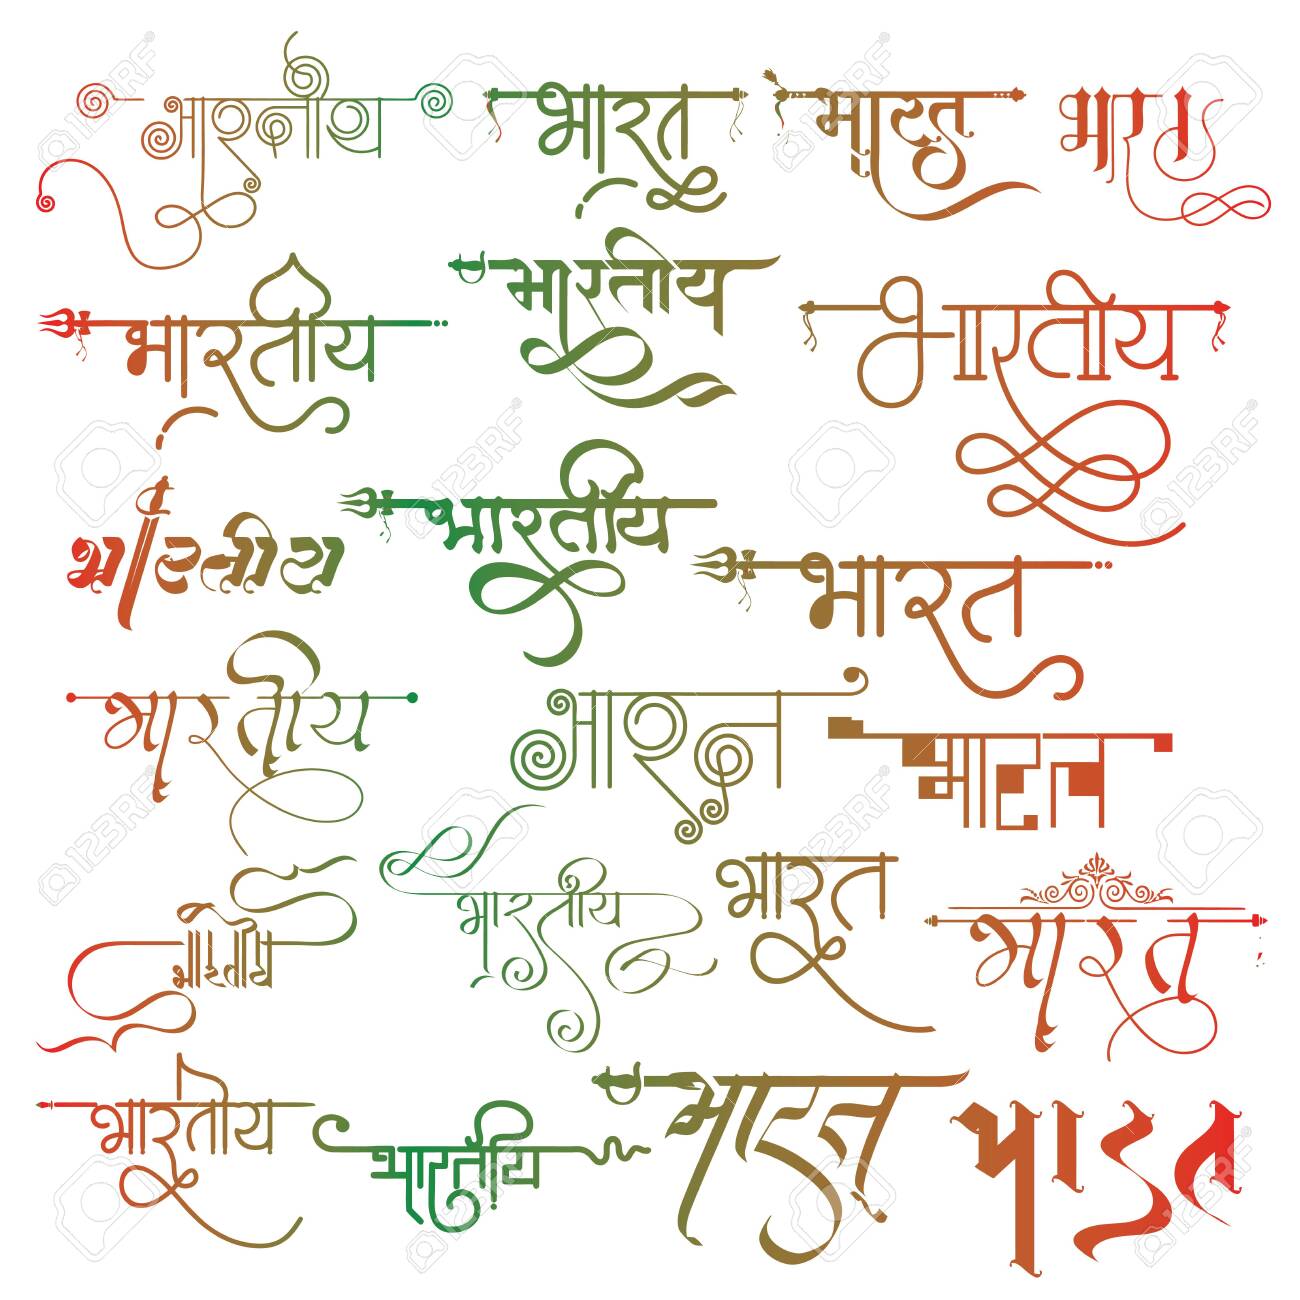 भारतीय भारत भारत भारत
भारतीय भारतीय भारतीय
भारतीय भारतीय भारत
भारतीय भारत भारत
भारतीय भारतीय भारत भारत
भारतीय भारतीय भारत भारत
123RF